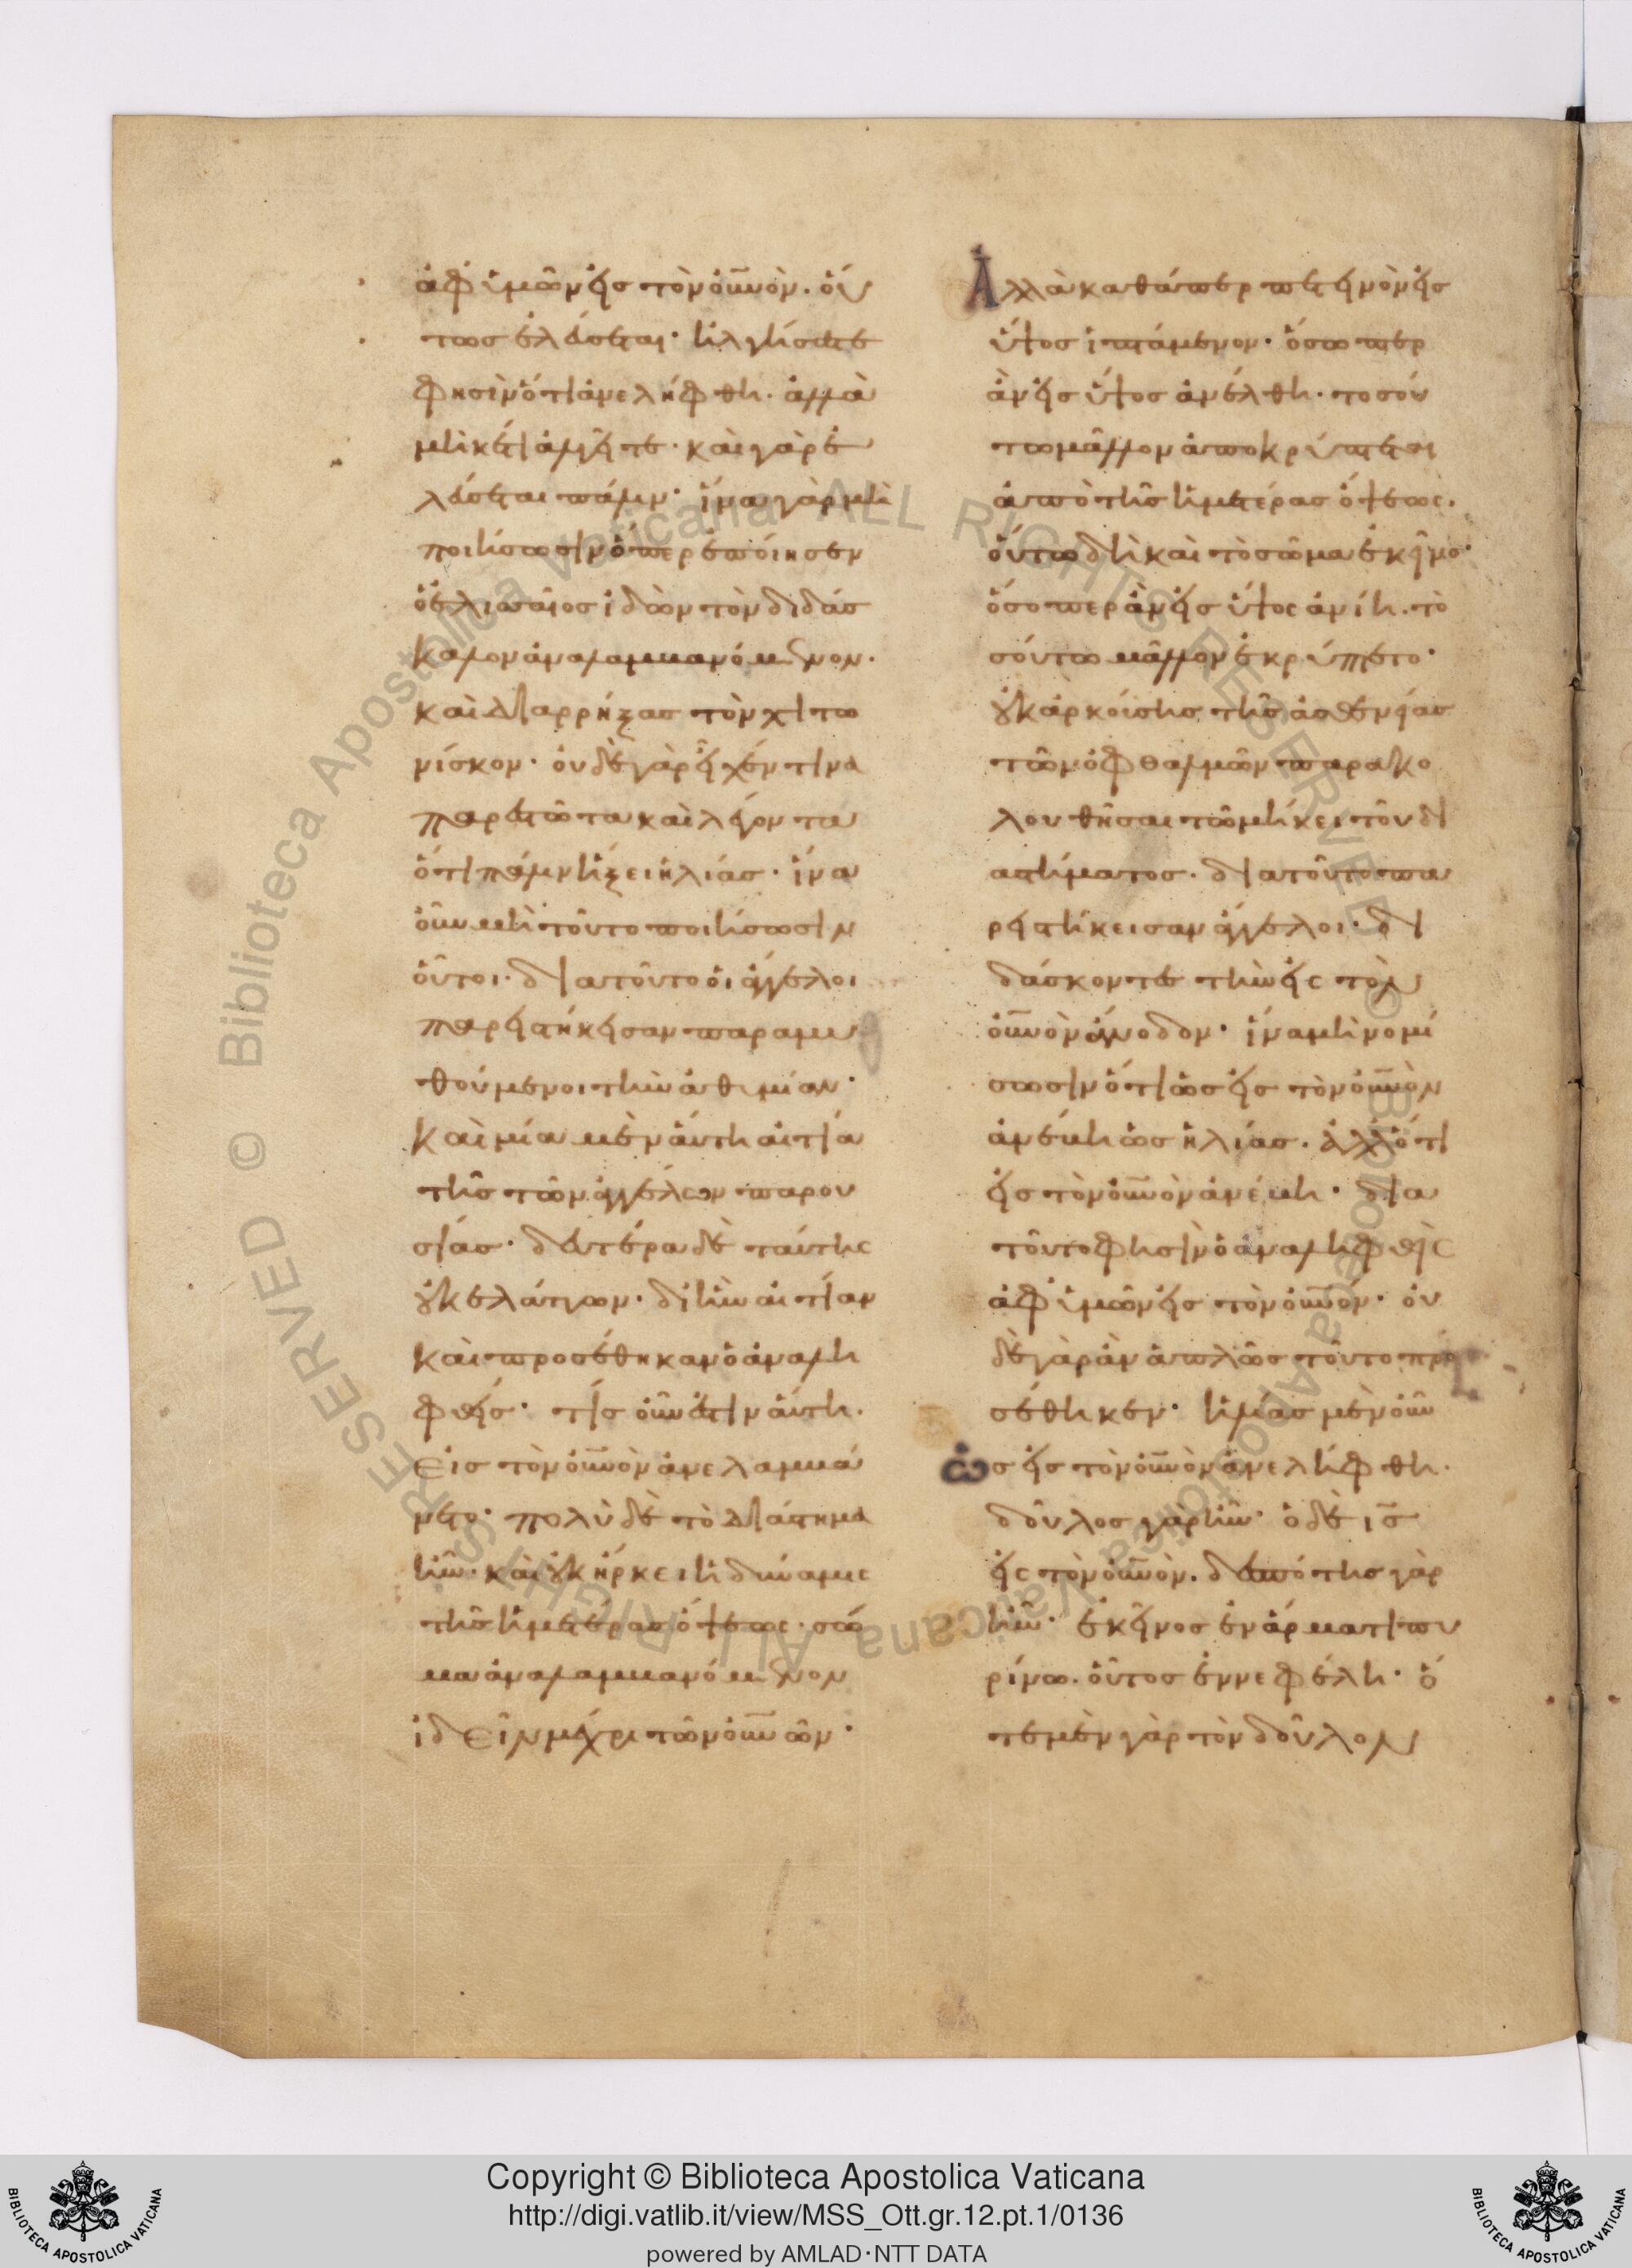 ἀφ ὑμῶν εἰς τὸν οὐνὸν. οὕ
τως ἐλεύσεται· ἠλγήσατε
φησὶν ὅτι ἀνελήφθη. ἀλλὰ
μὴκέτι ἀλγεῖτε· καὶ γὰρ ἐ
λεύσεται πάλιν· ἵνα γὰρ μὴ
ποιήσωσιν ὅπερ ἐποίησεν
ὁ ἐλισαῖος ἰδὼν τὸν διδάσ
καλον ἀναλαμβανόμενον.
καὶ διαρρήξας τὸν χιτω
νίσκον· οὐδὲ γὰρ εἶχέν τινα
παρεστῶτα καὶ λέγοντα
ὅτι πάλιν ἥξει ἠλίας· ἵνα
οὖν μὴ τοῦτο ποιήσωσιν
οὗτοι. διατοῦτο οἱ ἄγγελοι
παρειστήκεισαν παραμυ
θούμενοι τὴν ἀθυμίαν·
καὶ μία μὲν αὕτη αἰτία
τῆς τῶν ἀγγέλων παρου
σίας· δευτέρα δὲ ταύτης
οὐκ ἐλάττων· δι ἣν αἰτίαν
καὶ προσέθηκαν ὁ ἀναλη
φθείς· τίς οὖν ἐστιν αὕτη.
Εἰς τὸν οὐνὸν ἀνελαμβά
νετο· πολὺ δὲ τὸ διάστημα
ἦν· καὶ οὐκ ἤρκει ἡ δύναμις
τῆς ἡμετέρας ὄψεως· σῶ
μα ἀναλαμβανόμενον
ἰδεῖν μέχρι τῶν οὐνῶν·
Ἀλλὰ καθάπερ πετεινὸν εἰς
ὕψος ἱπτάμενον· ὅσω περ
ἂν εἰς ὕψος ἀνέλθη· τοσού
τω μᾶλλον ἀποκρύπτεται
ἀπὸ τῆς ἡμετέρας ὄψεως.
οὕτω δὴ καὶ τὸ σῶμα ἐκεῖνο·
ὅσο περ ἂν εἰς ὕψος ἀνίη. το
σούτω μᾶλλον ἐκρύπτετο·
οὐκ ἀρκούσης τῆς ἀσθενείας
τῶν ὀφθαλμῶν παρακο
λουθῆσαι τῶ μήκει τοῦ δι
αστήματος. διατοῦτο πα
ρειστήκεισαν ἄγγελοι. δι
δάσκοντες τὴν εἰς τὸν
οὐνὸν ἄνοδον· ἵνα μὴ νομί
σωσιν ὅτι ὡς εἰς τὸν οὐνὸν
ἀνέβη ὡς ἠλίας. ἀλλ ὅτι
εἰς τὸν οὐνὸν ἀνέβη· δια
τοῦτο φησὶν ὁ ἀναληφθεὶς
ἀφ ὑμῶν εἰς τὸν οὐνόν· οὐ
δὲ γὰρ ἂν ἁπλῶς τοῦτο προ
σέθηκεν· ἠλίας μὲν οὖν
ὡς εἰς τὸν οὐνὸν ἀνελήφθη.
δοῦλος γὰρ ἦν· ὁ δὲ ις
εἰς τὸν οὐνὸν. δεσπότης γὰρ
ἦν· ἐκεῖνος ἐν ἅρματι πυ
ρίνω. οὗτος ἐν νεφέλη· ὅ
τε μὲν γὰρ τὸν δοῦλον
Copyright © Biblioteca Apostolica Vaticana
http://digi.vatlib.it/view/MSS_Ott.gr.12.pt.1/0136
powered by AMLAD·NTT DATA
BIBLIOTECA APOSTOLICA VATICANA
BIBLIOTECA APOSTOLICA VATICANA
© Biblioteca Apostolica Vaticana ALL RIGHTS RESERVED
© Biblioteca Apostolica Vaticana ALL RIGHTS RESERVED